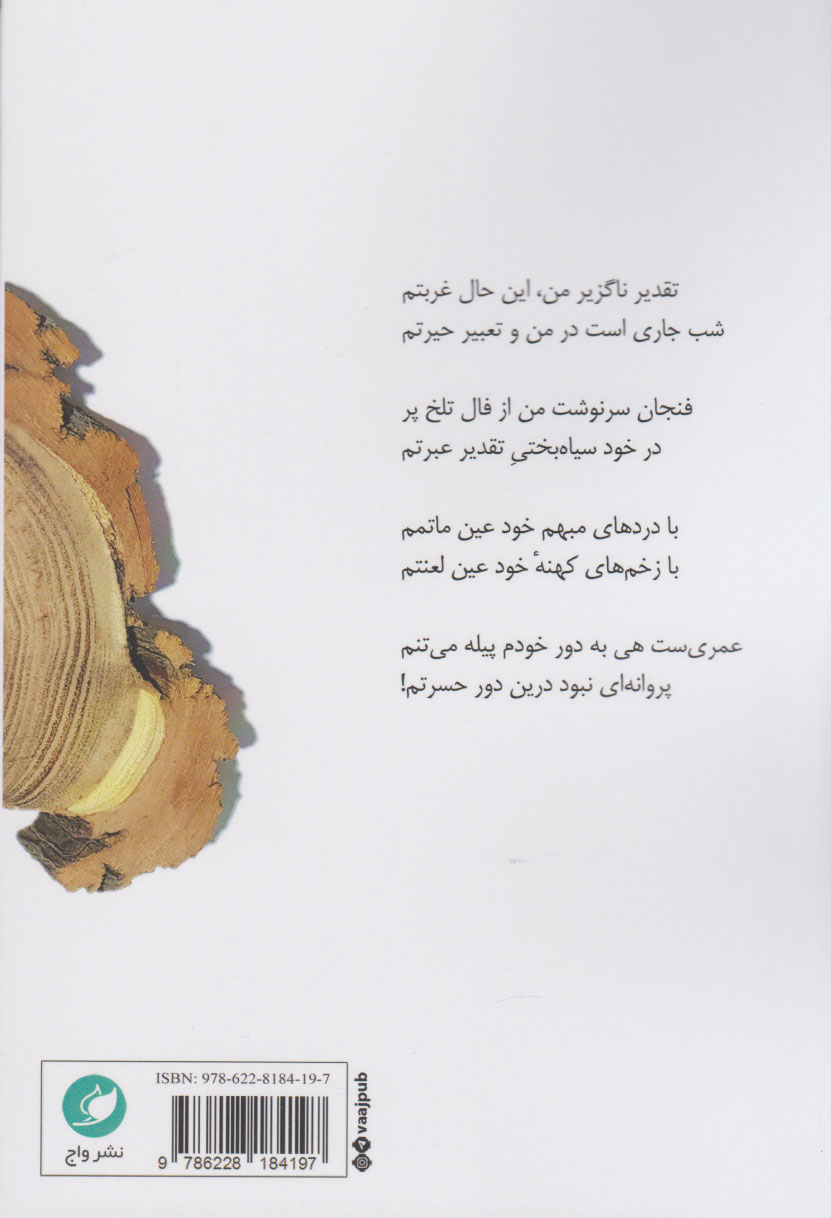 تقدیر ناگزیر من، این حال غربتم
شب جاری است در من و تعبیر حیرتم
فنجان سرنوشت من از فال تلخ پر
در خود سیاه‌بختیِ تقدیر عبرتم
با دردهای مبهم خود عین ماتمم
با زخم‌های کهنهٔ خود عین لعنتم
عمری‌ست هی به دور خودم پیله می‌تنم
پروانه‌ای نبود درین دور حسرتم!
ISBN: 978-622-8184-19-7
9 786228 184197
نشر واج
vaajpub